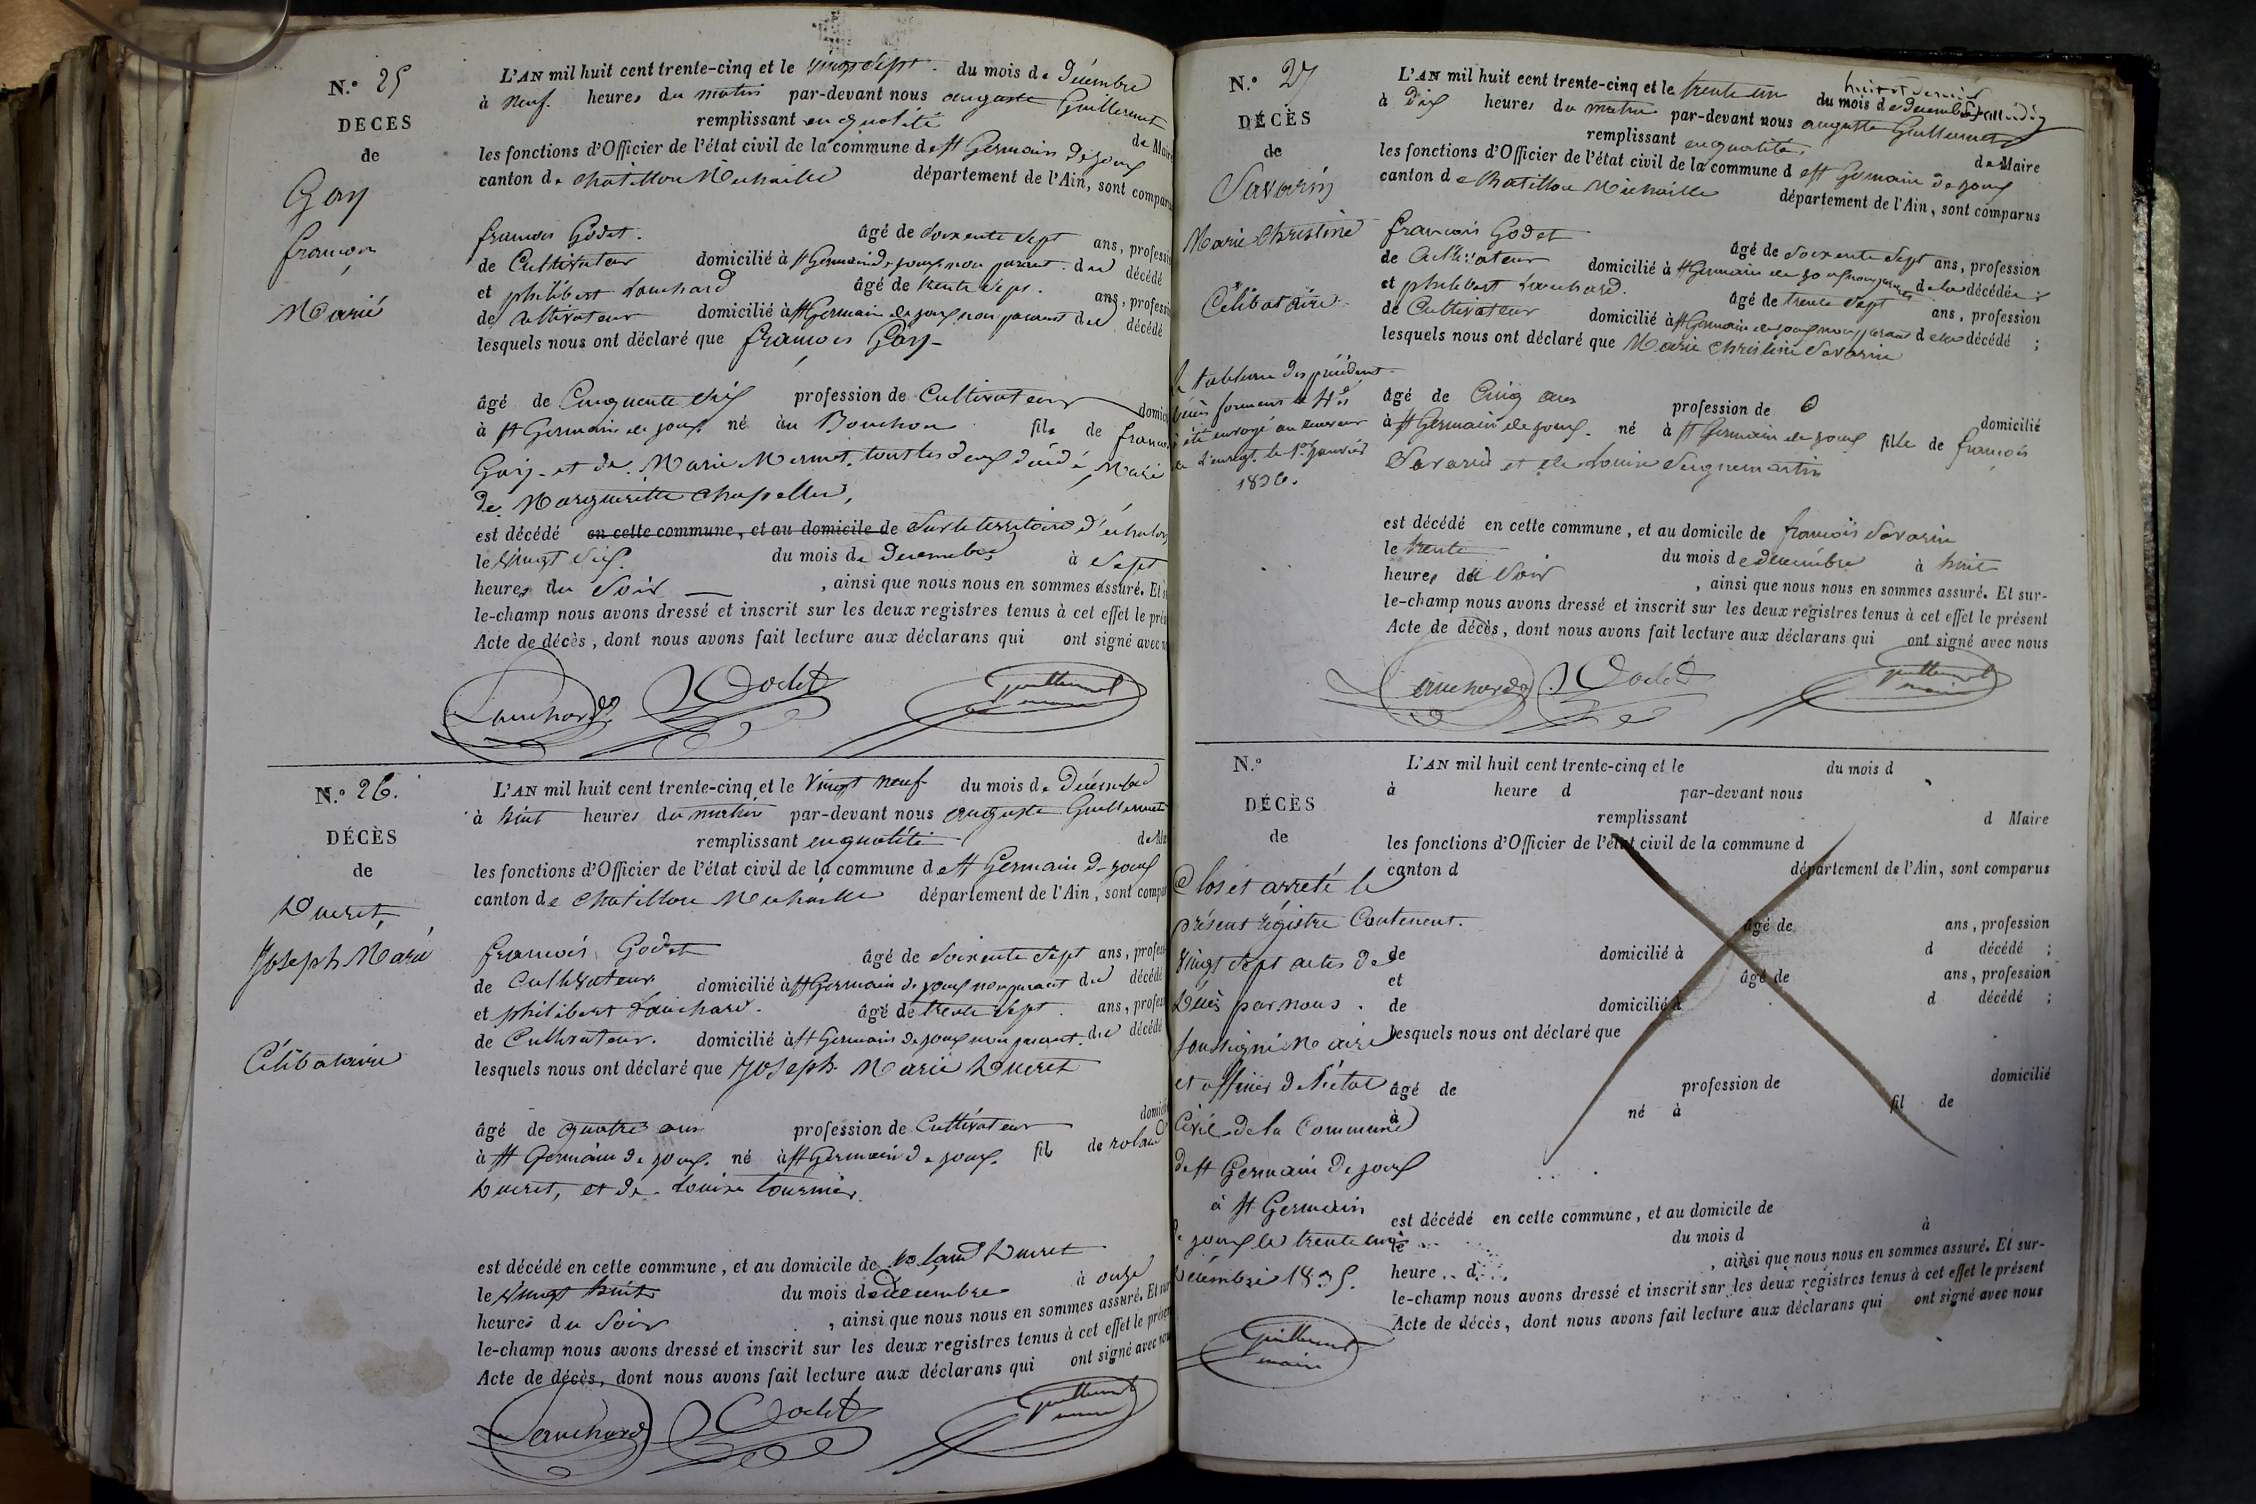 N.° 25
DECES
de
Gay
françois
Marié
L'AN mil huit cent trente-cinq et le vingt sept du mois de Décembre
à neuf heures du matin par-devant nous auguste Guillermet
remplissant en qualité de Maire
les fonctions d'Officier de l'état civil de la commune de St Germain de joux
canton de Chatillon Michaille département de l'Ain, sont comparus
françois Godet. âgé de soixente sept ans, profession
de Cultivateur domicilié à St Germain de joux non parent du décédé
et philibert Louchard âgé de trente sept. ans, profession
de Cultivateur domicilié à St Germain de joux non parent du décédé
lesquels nous ont déclaré que françois Gay
âgé de Cinquente six profession de Cultivateur domicilié
à St Germain de joux né au Bouchon fils de françois
Gay et de Marie Mermet, tout les deux décédé, Marié
de Margueritte Chapellu,
est décédé en cette commune, et au domicile de Sur le territoire d'échalon
le vingt six du mois de Decembre à Sept
heures du Soir , ainsi que nous nous en sommes assuré. Et
le-champ nous avons dressé et inscrit sur les deux registres tenus à cet effet le
Acte de décès, dont nous avons fait lecture aux déclarans qui ont signé avec
Louchard Godet Guillermet maire
N.° 26.
DÉCÈS
de
Ducret,
Joseph Marie
Célibataire
L'AN mil huit cent trente-cinq et le vingt neuf du mois de Décembre
à huit heures du matin par-devant nous auguste Guillermet
remplissant en qualité de
les fonctions d'Officier de l'état civil de la commune de St Germain de joux
canton de Chatillon Michaille département de l'Ain, sont
françois Godet âgé de soixente sept ans,
de Cultivateur domicilié à St Germain de joux non parent du décédé
et philibert Louchard. âgé de trente sept. ans,
de Cultivateur. domicilié à St Germain de joux non parent. du décédé
lesquels nous ont déclaré que Joseph Marie Ducret
âgé de quatre ans profession de Cultivateur
à St Germain de joux. né à St Germain de joux. fils de roland
Ducret, et de Louise Tournier.
est décédé en cette commune, et au domicile de roland Ducret
le vingt huit du mois de Decembre à onze
heures du Soir , ainsi que nous nous en sommes assuré. Et
le-champ nous avons dressé et inscrit sur les deux registres tenus à cet effet le
Acte de décès, dont nous avons fait lecture aux déclarans qui ont signé avec
Louchard Godet Guillermet maire
N.° 27
DÉCÈS
de
Savarin
Marie Christine
Célibataire
L'AN mil huit cent trente-cinq et le trente un du mois de decembre
à Dix heures du matin par-devant nous auguste Guillermet
remplissant en qualité de Maire
les fonctions d'Officier de l'état civil de la commune de St Germain de joux
canton de Chatillon Michaille département de l'Ain, sont comparus
françois Godet âgé de soixente sept ans, profession
de Cultivateur domicilié à St Germain de joux non parent de la décédée ;
et philibert Louchard. âgé de trente sept ans, profession
de Cultivateur domicilié à St Germain de joux non parent de la décédé ;
lesquels nous ont déclaré que Marie Christine Savarin
âgé de Cinq ans profession de 0 domicilié
à St Germain de joux. né à St Germain de joux fille de françois
Savarin et de Louise Seignemartin
est décédé en cette commune, et au domicile de françois Savarin
le trente du mois de decembre à huit
heures du Soir , ainsi que nous nous en sommes assuré. Et sur-
le-champ nous avons dressé et inscrit sur les deux registres tenus à cet effet le présent
Acte de décès, dont nous avons fait lecture aux déclarans qui ont signé avec nous
Louchard Godet Guillermet maire
été envoyé au receveur
de l'enregt. le 1er janvier
1836.
N.°
DÉCÈS
de
L'AN mil huit cent trente-cinq et le du mois d
à heure d par-devant nous
remplissant d Maire
les fonctions d'Officier de l'état civil de la commune d
canton d département de l'Ain, sont comparus
âgé de ans, profession
de domicilié à d décédé ;
et âgé de ans, profession
de domicilié à d décédé ;
lesquels nous ont déclaré que
âgé de profession de domicilié
à né à fil de
est décédé en cette commune, et au domicile de
le du mois d à
heure d , ainsi que nous nous en sommes assuré. Et sur-
le-champ nous avons dressé et inscrit sur les deux registres tenus à cet effet le présent
Acte de décès, dont nous avons fait lecture aux déclarans qui ont signé avec nous
Clos et arreté le
présent régistre Contenent.
vingt sept actes de
Décès par nous.
soussigné Maire
et officier de l'état
Civil de la Commune
de St Germain de joux
à St Germain
de joux le trente un
Décembre 1835.
Guillermet
maire